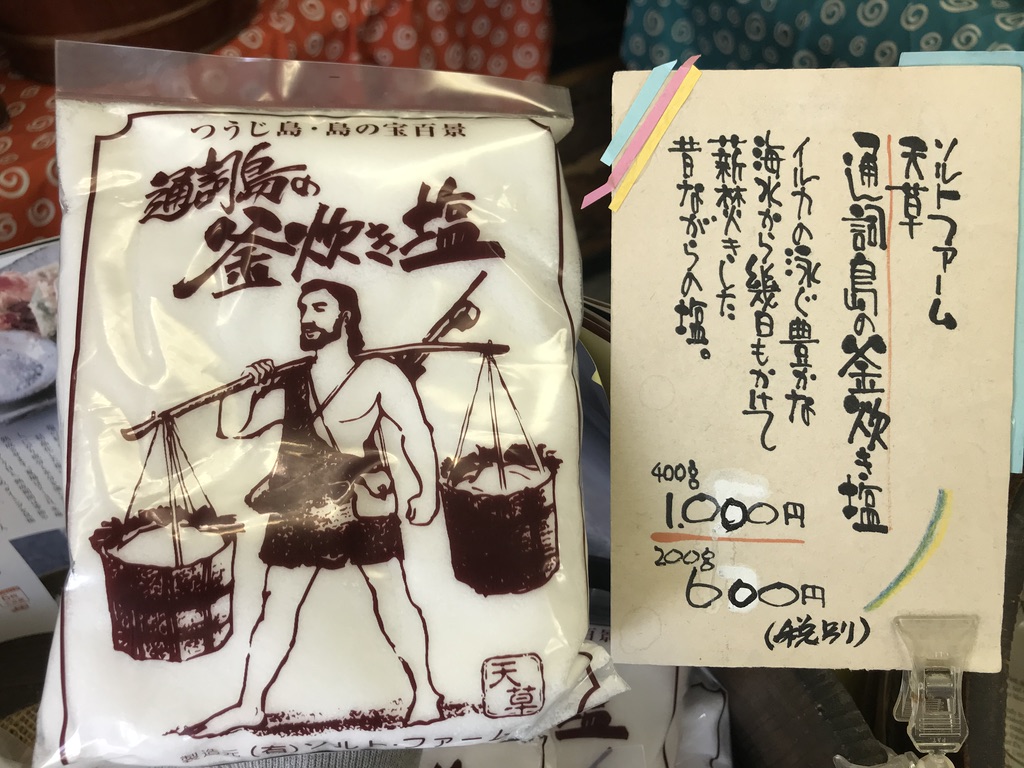 つうじ島・島の宝百景
通詞島の
釜炊き塩
天草
製造元 (有)ソルト・ファーム
ソルトファーム
天草
通詞島の釜炊き塩
イルカの泳ぐ豊かな
海水から幾日もかけて
薪焚きした
昔ながらの塩。
400g
1.000円
200g
600円
(税別)
塩